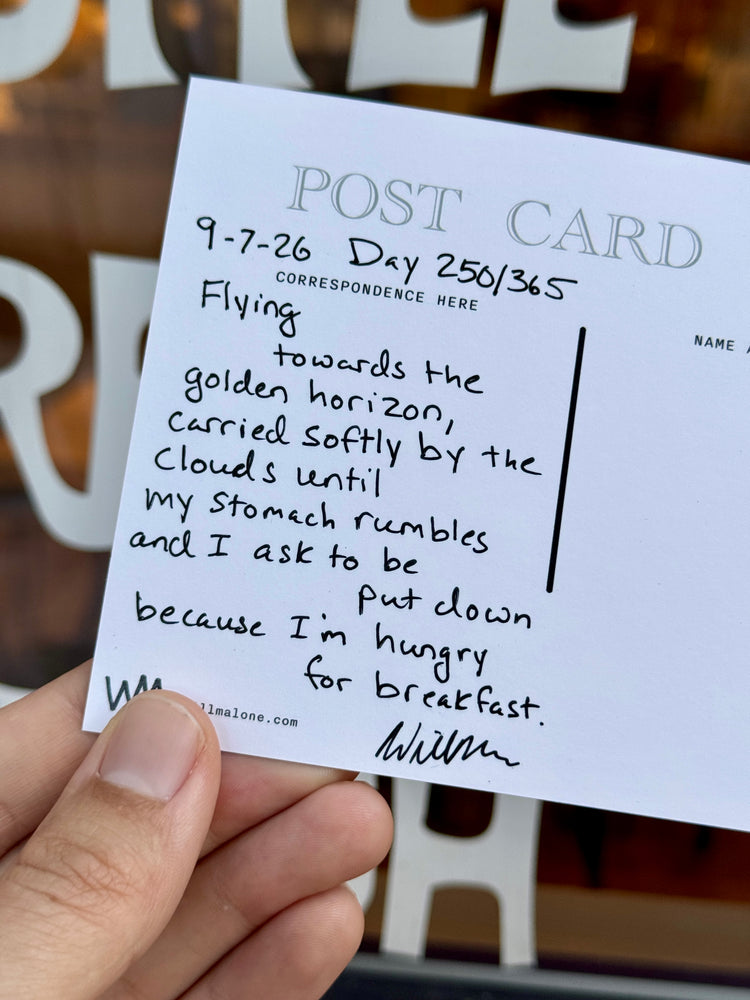 POST CARD
9-7-26 Day 250/365
CORRESPONDENCE HERE
NAME
Flying
towards the
golden horizon,
carried softly by the
clouds until
my stomach rumbles
and I ask to be
put down
because I'm hungry
for breakfast.
llmalone.com